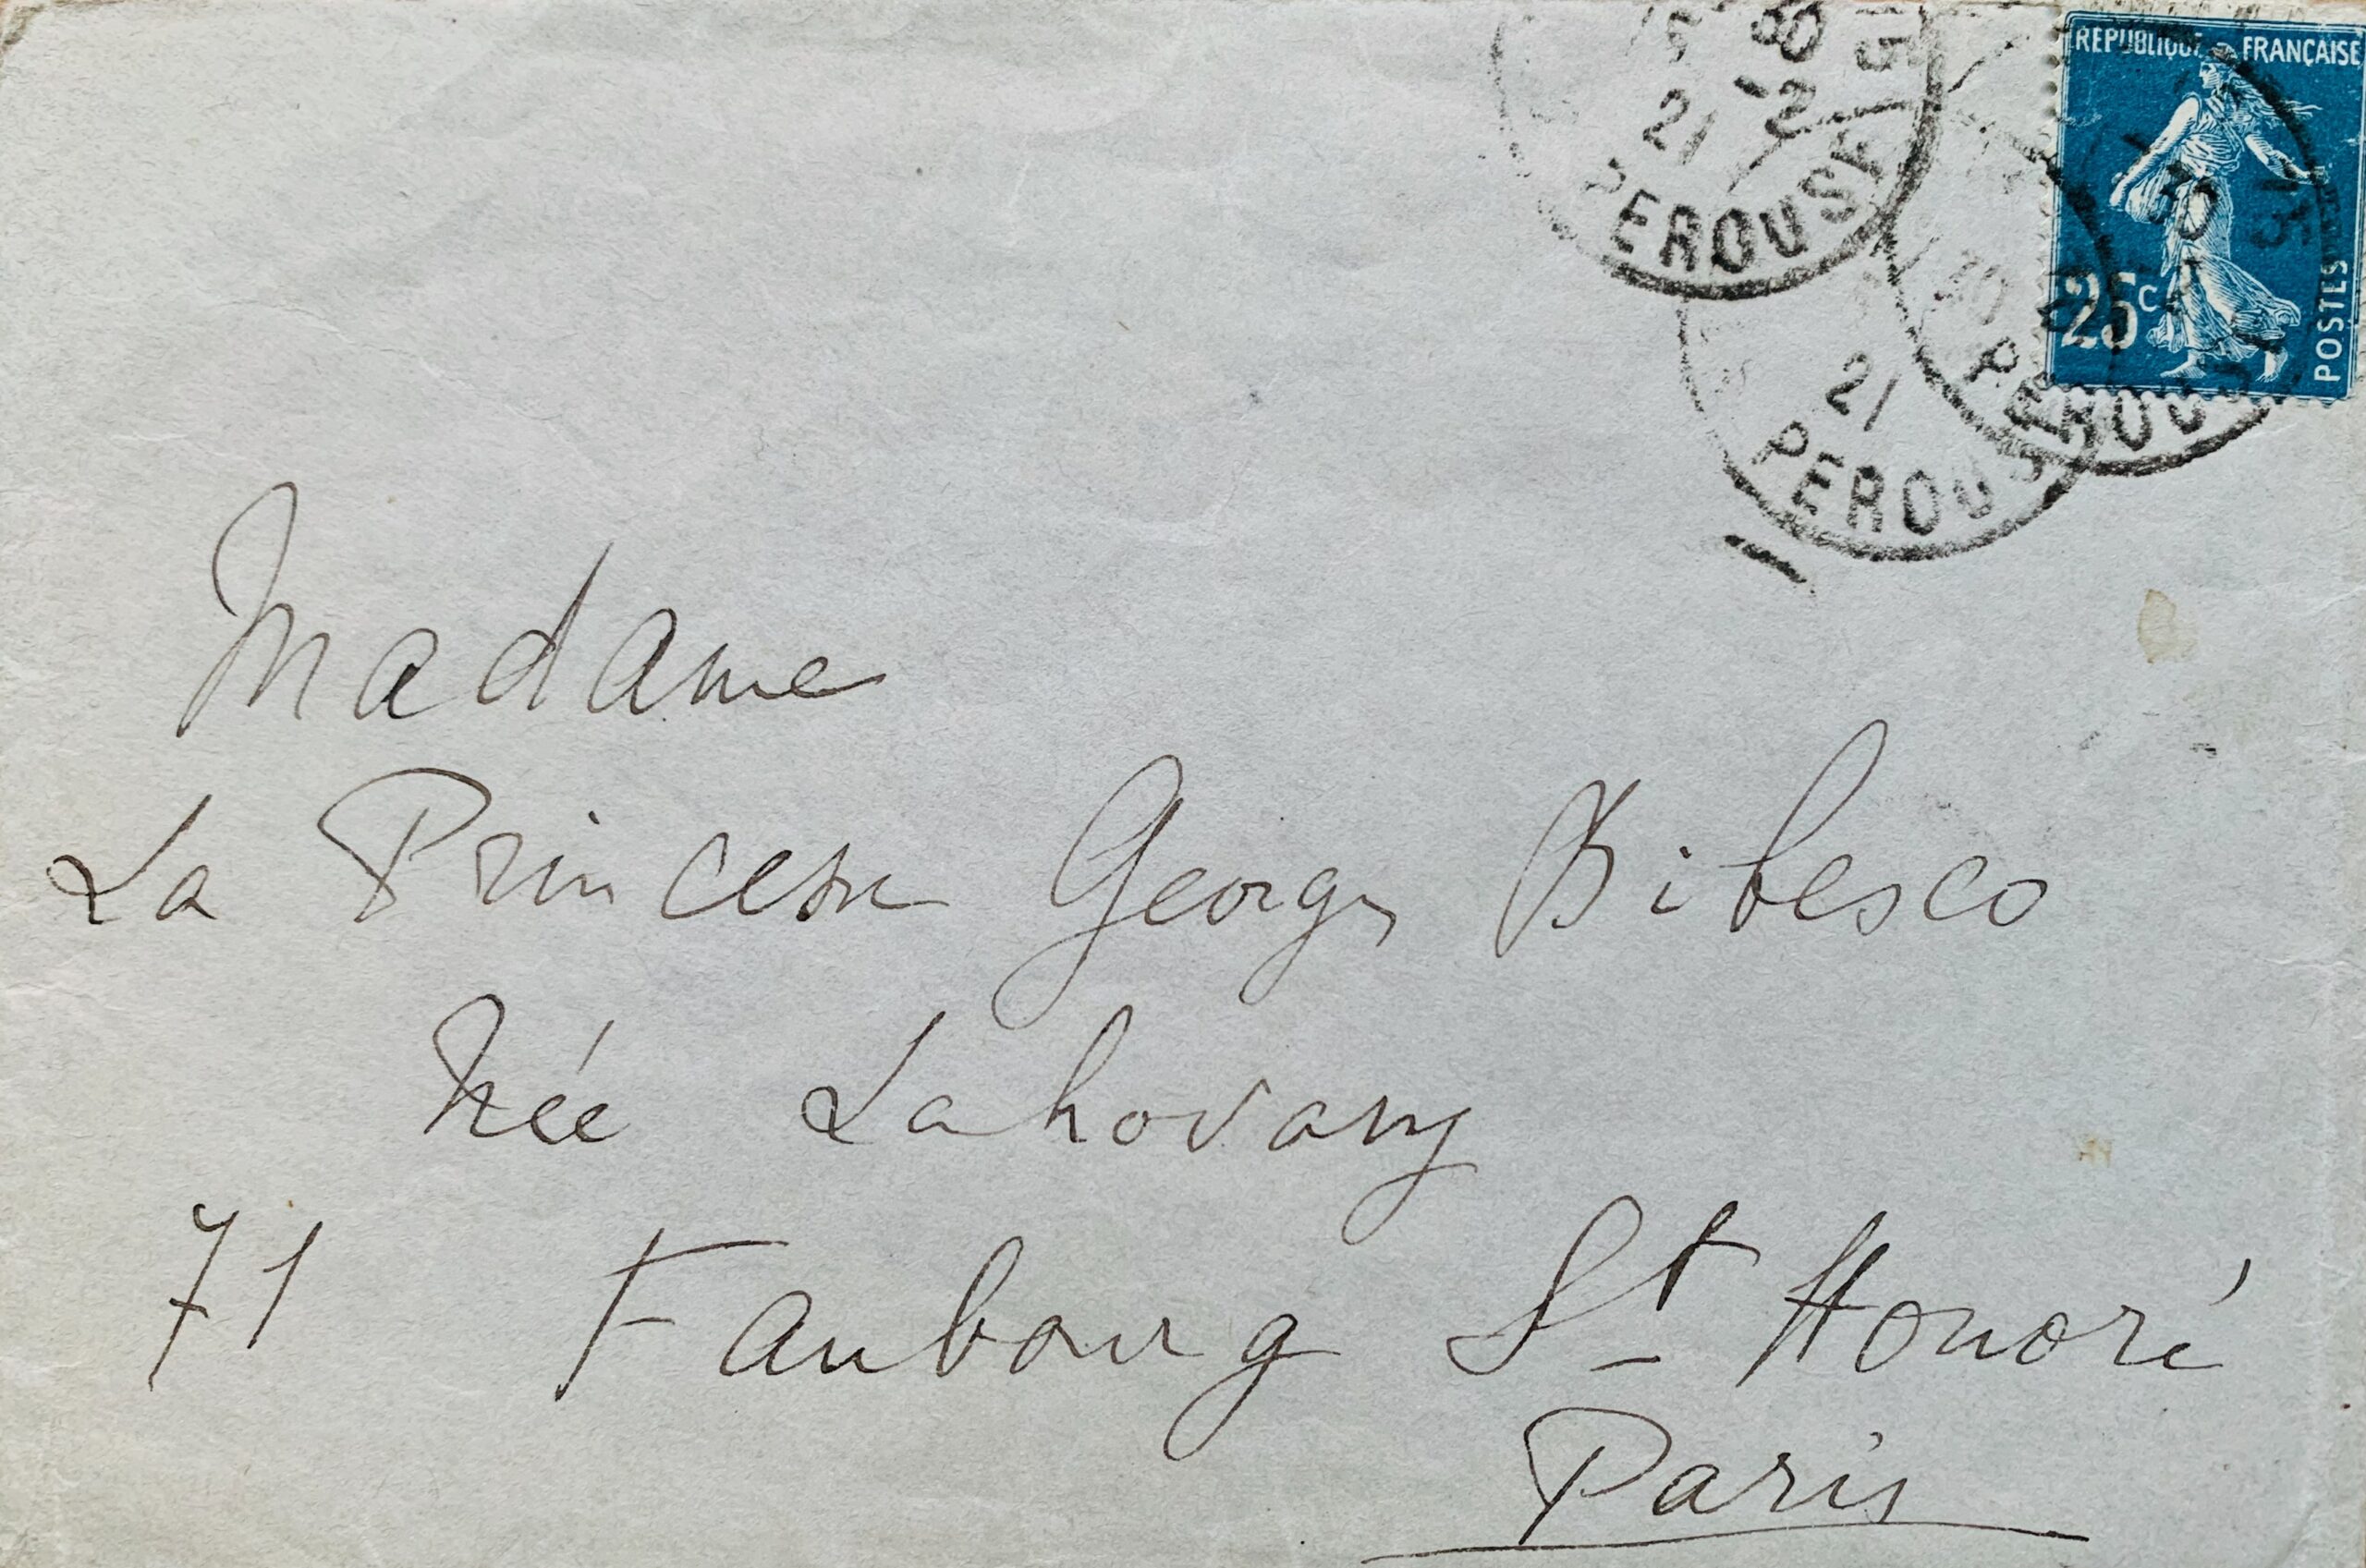 RÉPUBLIQUE FRANÇAISE
25c
POSTES
21 - 2
PEROUSE
21
PEROUS
PEROUS
Madame
La Princesse Georges Bibesco
née Lahovary
71 Faubourg St Honoré
Paris